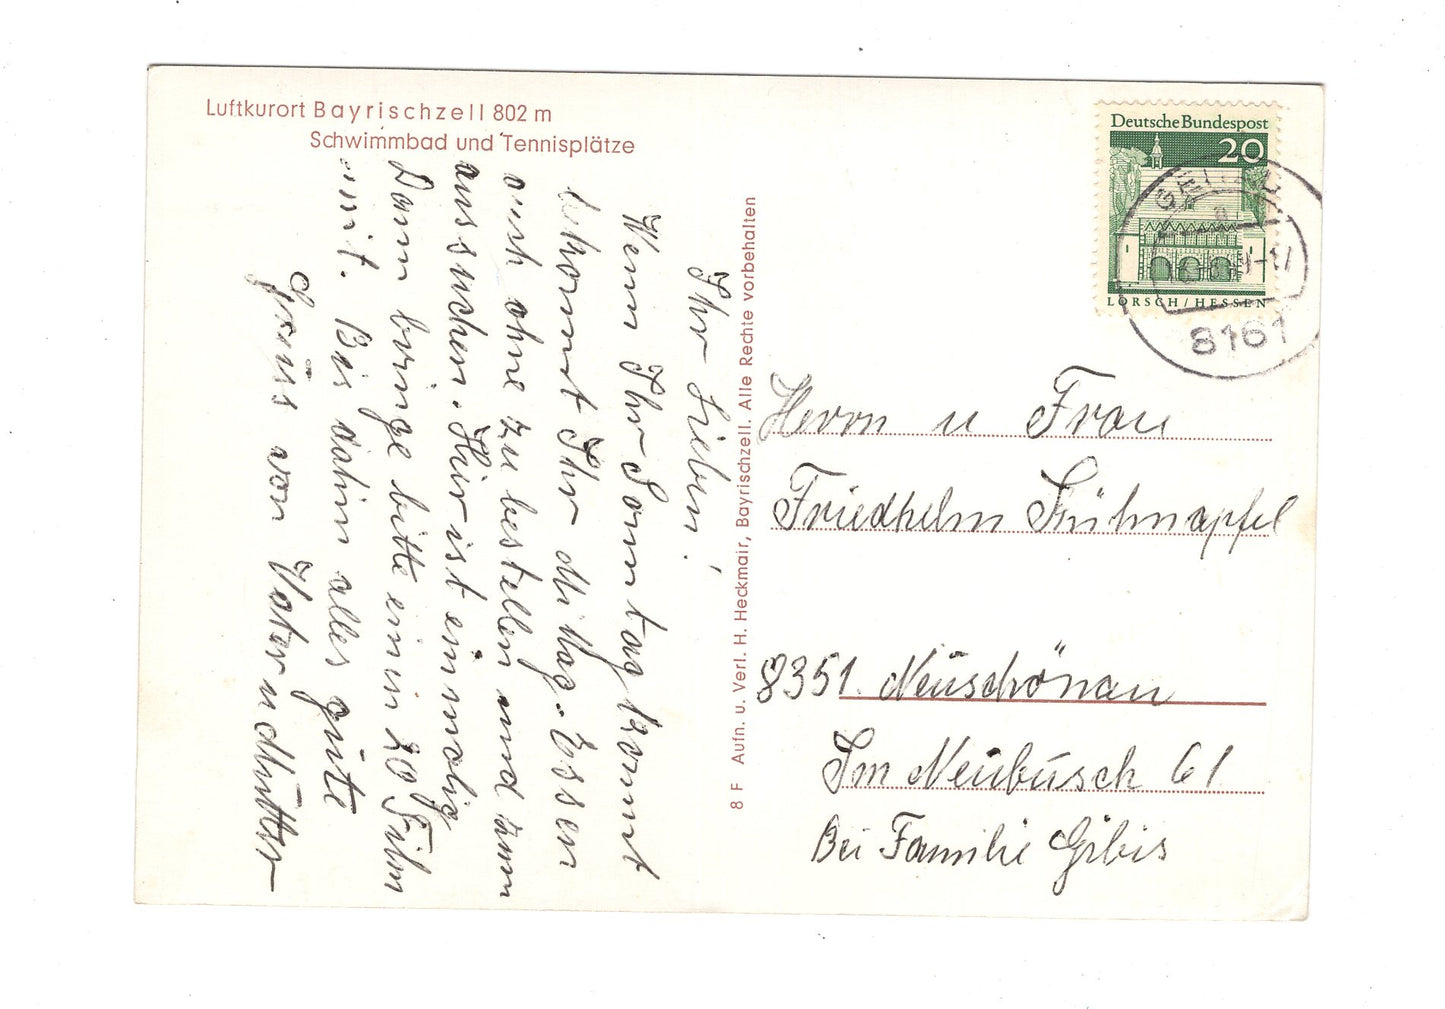 Luftkurort Bayrischzell 802 m
Schwimmbad und Tennisplätze
Ihr Lieben!
Wenn Ihr Sonntag kommt
bekommt Ihr Mittag-Essen
auch ohne zu bestellen und zum
aussuchen. Hier ist einmalig
Dann bringe bitte einen 20 Film
mit. Bis dahin alles gute
Grüss von Vater u Mutter
8 F Aufn. u. Verl. H. Heckmair, Bayrischzell. Alle Rechte vorbehalten
Deutsche Bundespost
20
LORSCH / HESSEN
8161
Herrn u Frau
Friedhelm Kühnapfel
8351 Neuschönau
Im Neubusch 61
Bei Familie Gibis